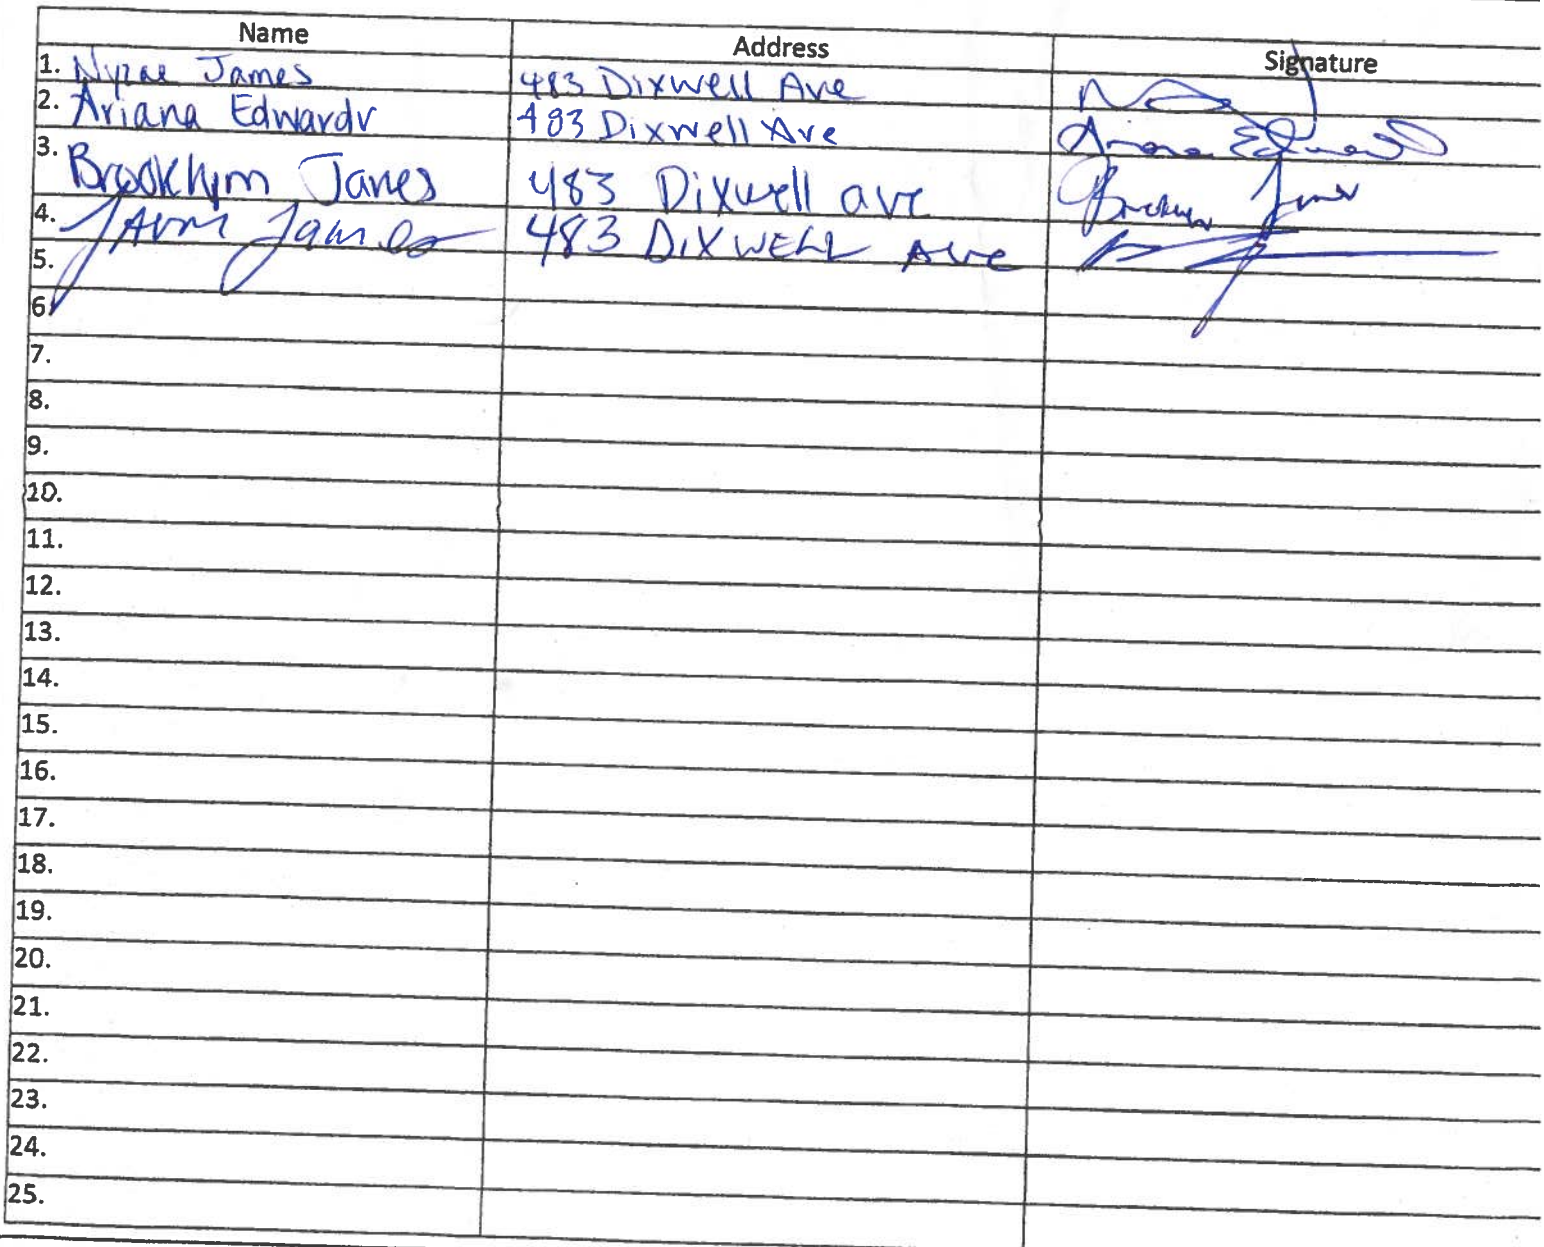 Name Address Signature
1. Nyzae James 483 Dixwell Ave
2. Ariana Edwards 483 Dixwell Ave Ariana Edwards
3. Brooklynn James 483 Dixwell ave
4. James 483 DIXWELL Ave
5.
6.
7.
8.
9.
10.
11.
12.
13.
14.
15.
16.
17.
18.
19.
20.
21.
22.
23.
24.
25.